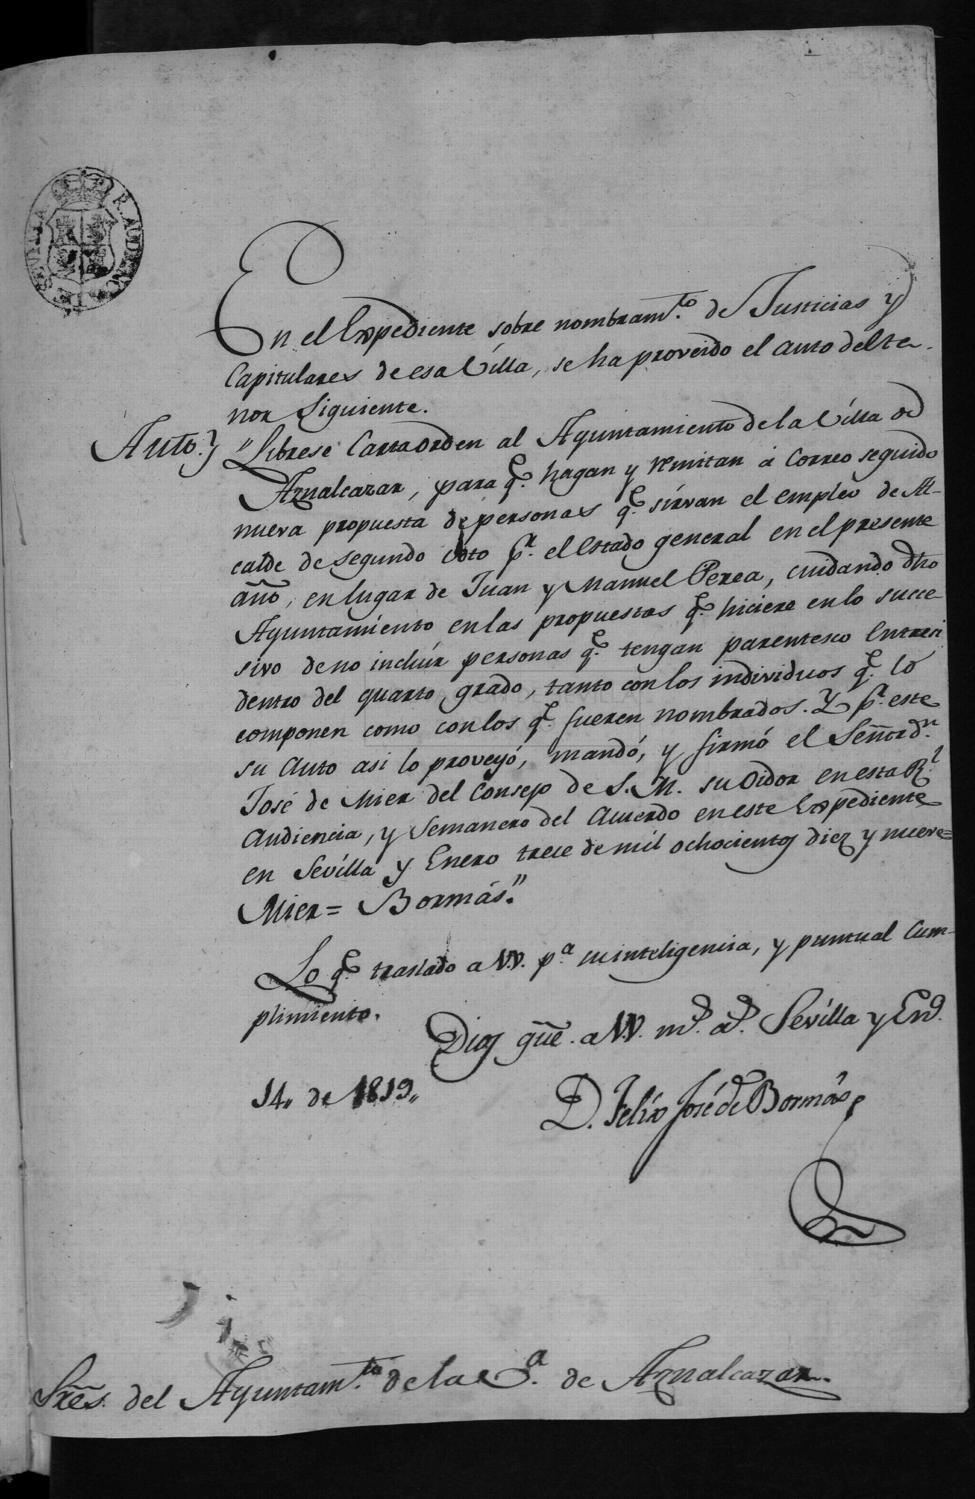 SEVILLA R. AUDIENCIA
En el Expediente sobre nombramto. de Justicias y
Capitulares de esa Villa, se ha proveido el auto del te-
nor siguiente.
Auto.} "Librese Carta orden al Ayuntamiento de la Villa de
Aznalcazar, para q.e hagan y remitan á correo seguido
nueva propuesta de personas q.e sirvan el empleo de Al-
calde de segundo voto p.r el estado general en el presente
año, en lugar de Juan y Manuel Perea, cuidando dho
Ayuntamiento en las propuestas q.e hiciere en lo succe
sivo de no incluir personas q.e tengan parentesco entre si
dentro del quarto grado, tanto con los individuos q.e lo
componen como con los q.e fueren nombrados. Y p.r este
su auto asi lo proveyó, mandó, y firmó el Señor d.n
José de Mier del Consejo de S. M. su Oidor en esta R.l
Audiencia, y Semanero del Acuerdo en este Expediente
en Sevilla y Enero trece de mil ochocientos diez y nueve=
Mier= Bormás".
Lo q.e traslado a VV. p.a su inteligencia, y puntual cum-
plimiento.
Dios gue. a VV. m.s a.s Sevilla y En.o
14,, de 1819,,
D. Felix José de Bormás
Sres. del Ayuntam.to de la V.a de Aznalcazar.